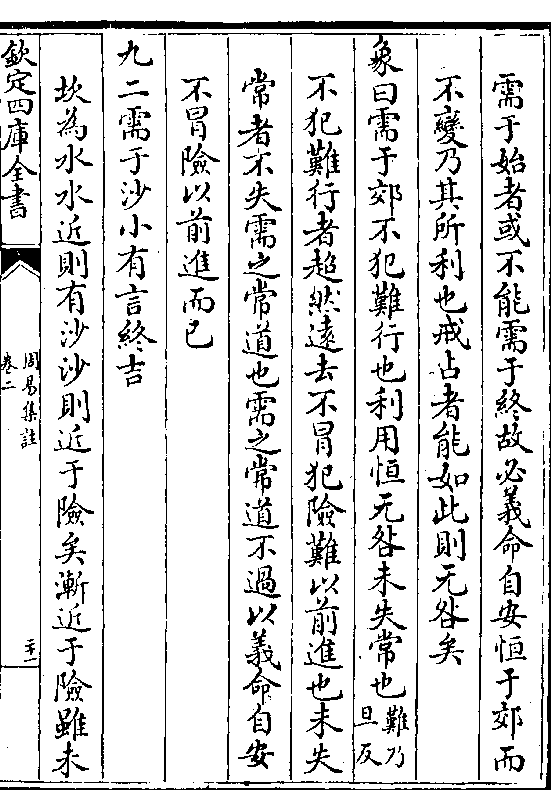 需于始者或不能需于終故必義命自安恒于郊而
不變乃其所利也戒占者能如此則无咎矣
象曰需于郊不犯難行也利用恒无咎未失常也難乃旦反
不犯難行者超然遠去不冒犯險難以前進也未失
常者不失需之常道也需之常道不過以義命自安
不冒險以前進而已
九二需于沙小有言終吉
坎為水水近則有沙沙則近于險矣漸近于險雖未
欽定四庫全書
周易集註
卷二
二十一